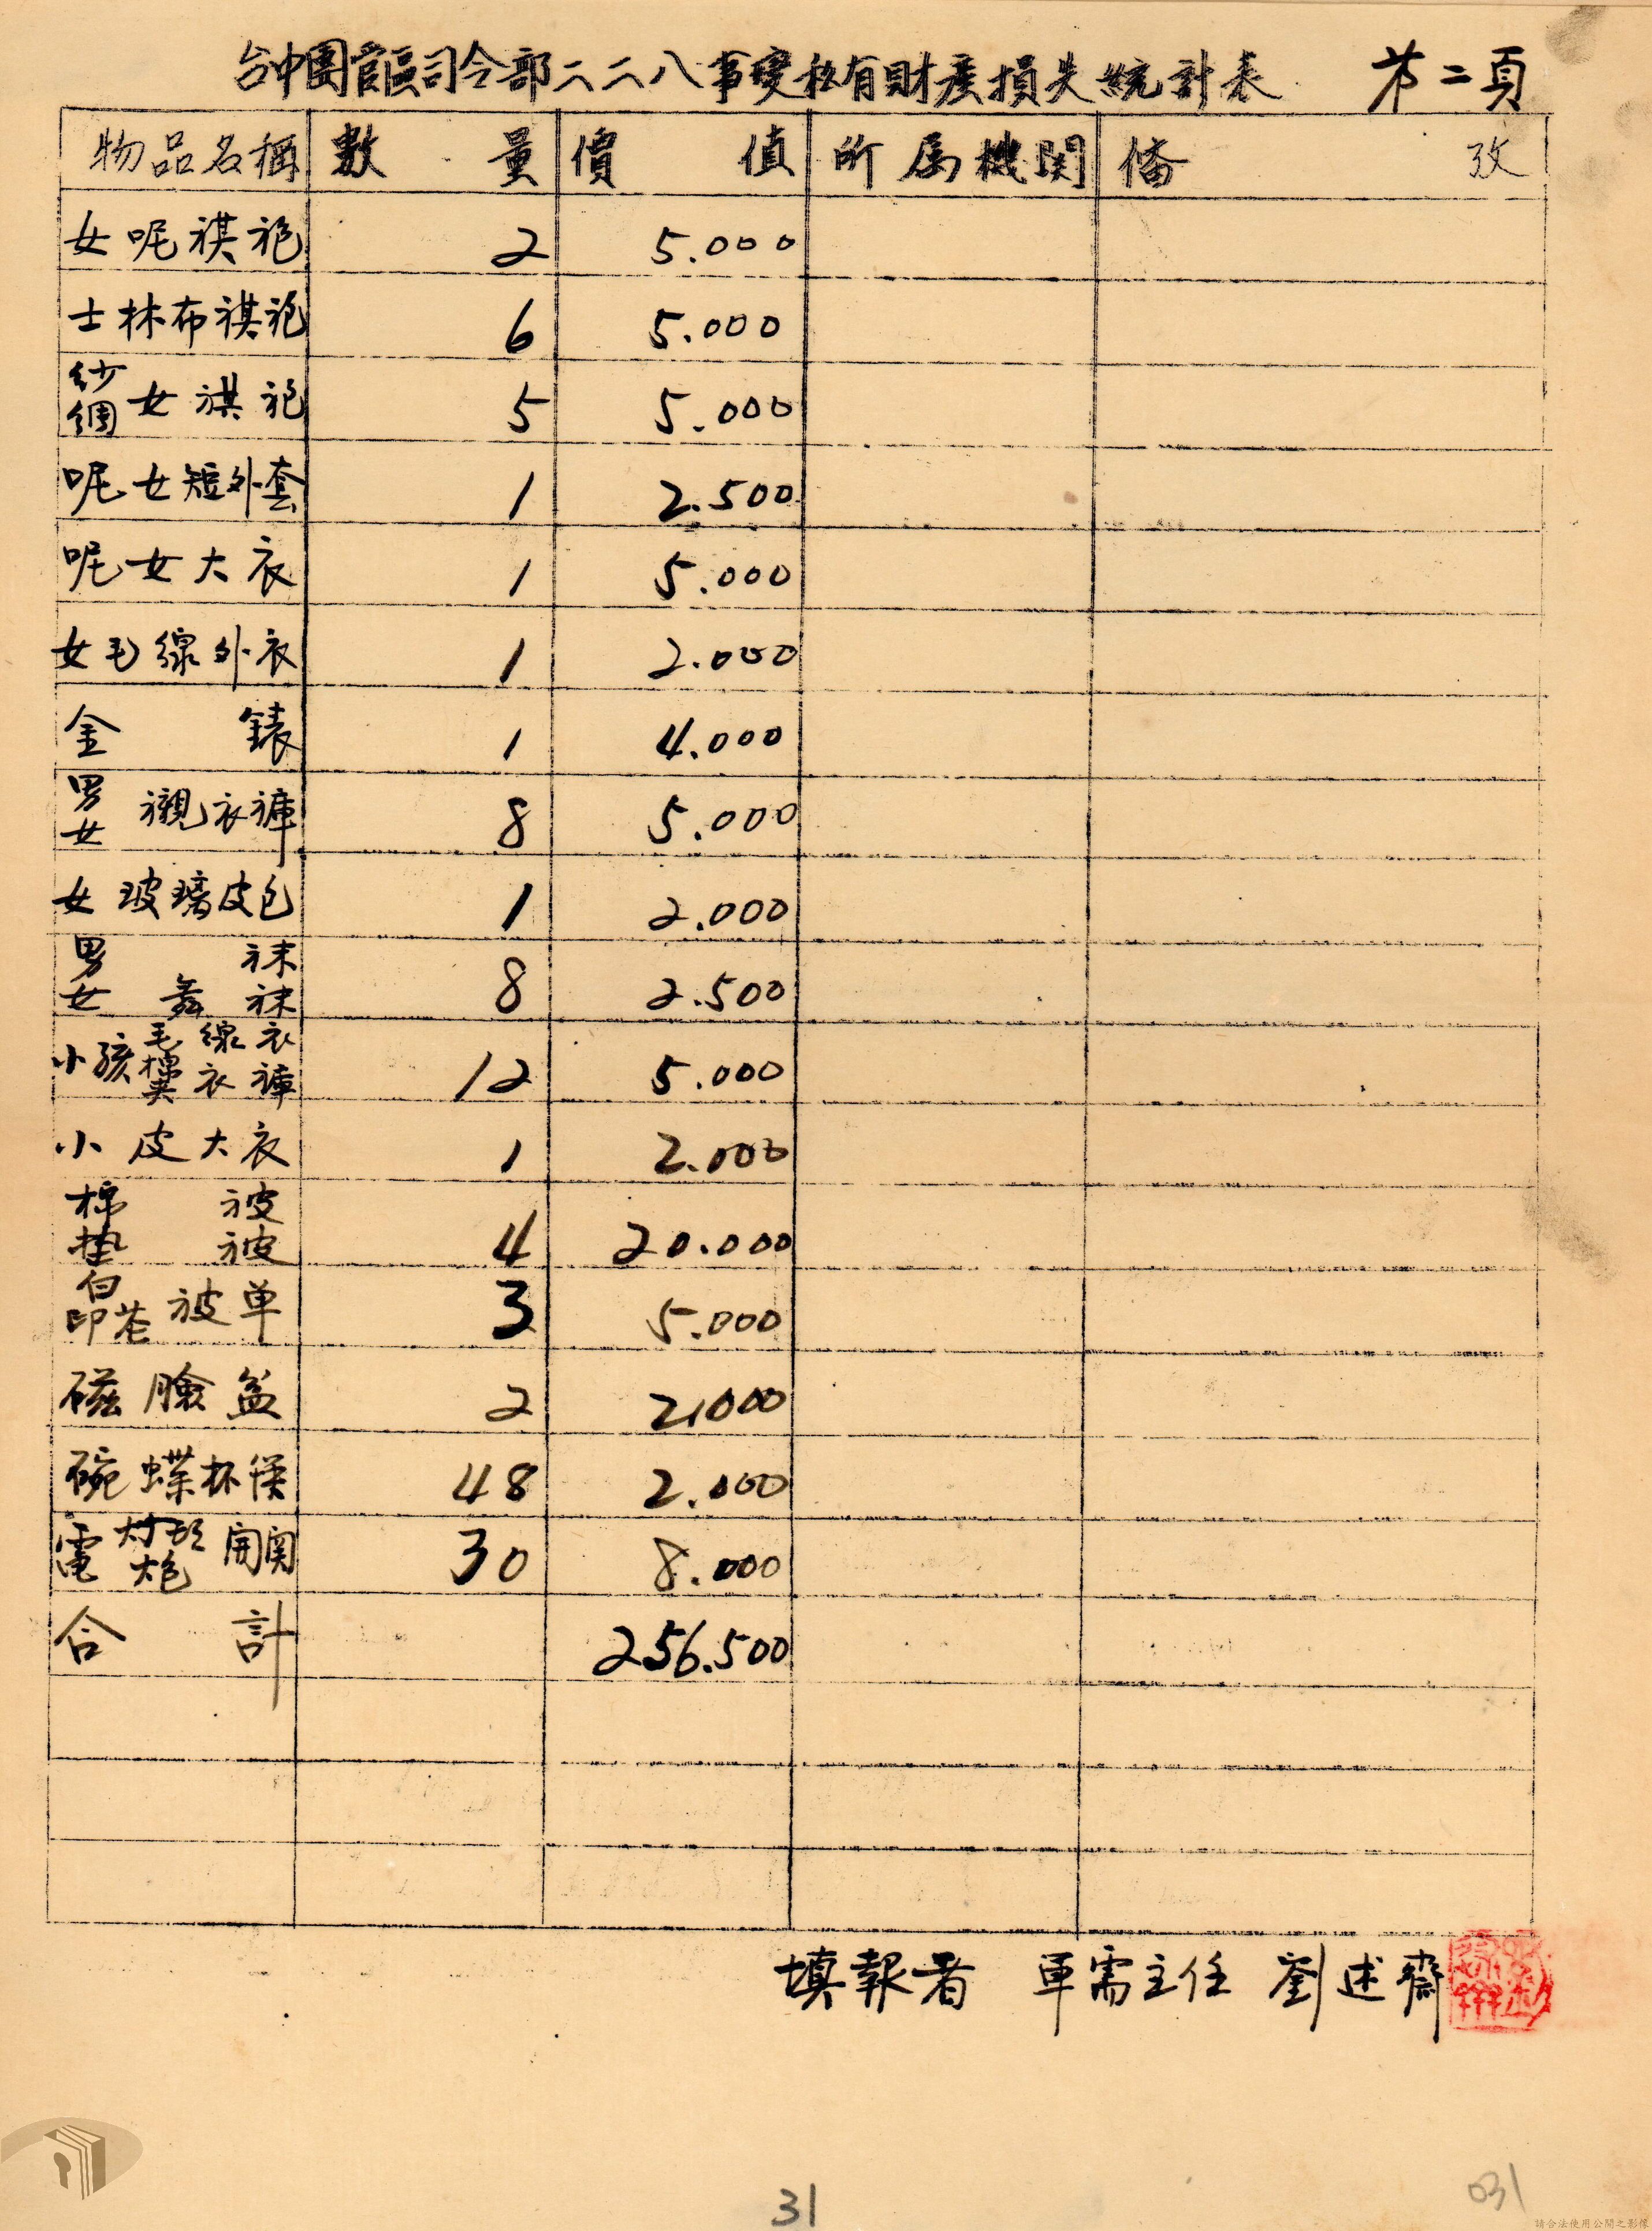 台中團管區司令部二二八事變私有財產損失統計表 第二頁
物品名稱 數量 價值 所屬機関 備攷
女呢褀袍 2 5.000
士林布褀袍 6 5.000
紗綢女褀袍 5 5.000
呢女短外套 1 2.500
呢女大衣 1 5.000
女毛線外衣 1 2.000
金錶 1 4.000
男女襯衣褲 8 5.000
女玻璃皮包 1 2.000
男襪女襪 8 2.500
小孩毛線衣衣褲 12 5.000
小皮大衣 1 2.000
棉被垫被 4 20.000
白印花被单 3 5.000
磁臉盆 2 2.000
碗蝶杯 48 2.000
電灯炮開関 30 8.000
合計 256.500
填報者 軍需主任 劉述齋
31
031
請合法使用公開之影像